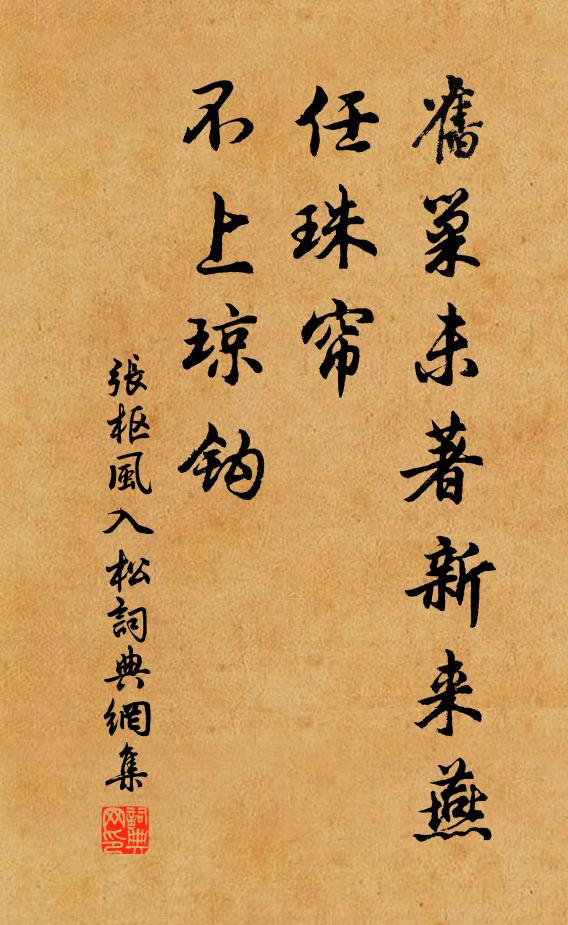 舊巢未著新来燕
任珠帘
不上琼鈎
張枢風入松詞典網集
詞典网印